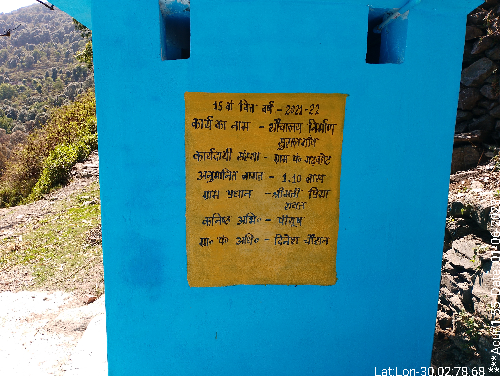 15 वां वित्त वर्ष - 2021-22
कार्य का नाम - शौचालय निर्माण
कार्यदायी संस्था - ग्राम पं०
अनुमानित लागत - 1.10 लाख
ग्राम प्रधान - श्रीमती
कनिष्ठ अभि० - पीयूष
ग्रा० पं० अधि० - दिनेश चौहान
Lat:Lon-30.02:78.68